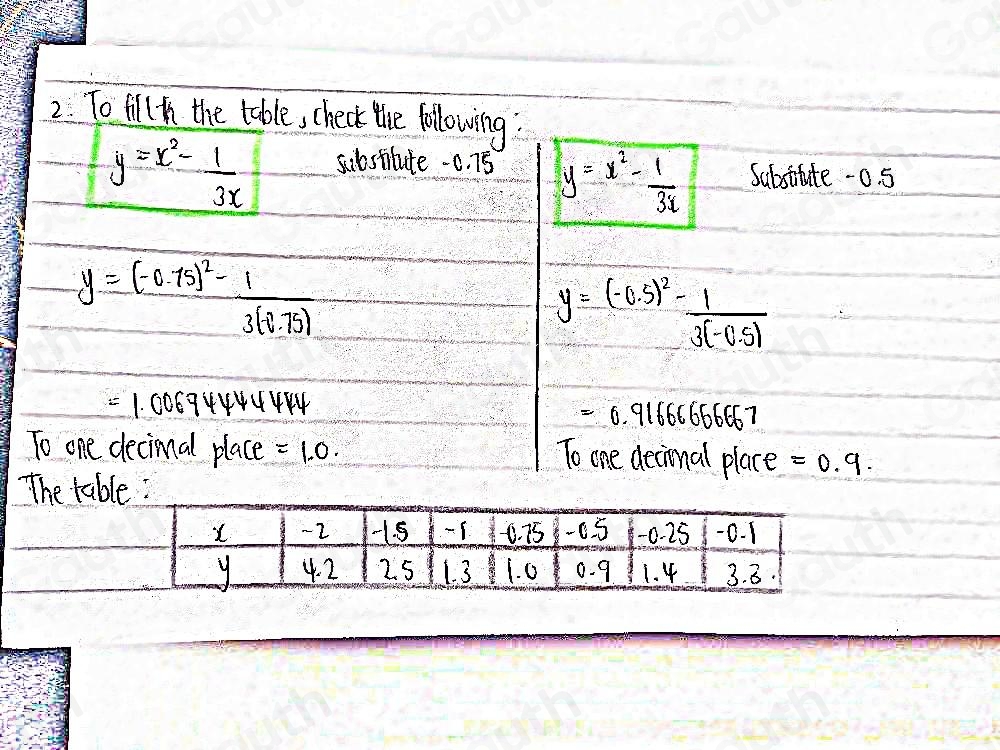 2. To fill in the table, check the following:
y = x² - 1/3x substitute -0.75
y = (-0.75)² - 1/3(-0.75)
= 1.00694444444
To one decimal place = 1.0.
y = x² - 1/3x Substitute -0.5
y = (-0.5)² - 1/3(-0.5)
= 0.91666666667
To one decimal place = 0.9.
The table:
x -2 -1.5 -1 -0.75 -0.5 -0.25 -0.1
y 4.2 2.5 1.3 1.0 0.9 1.4 3.3.